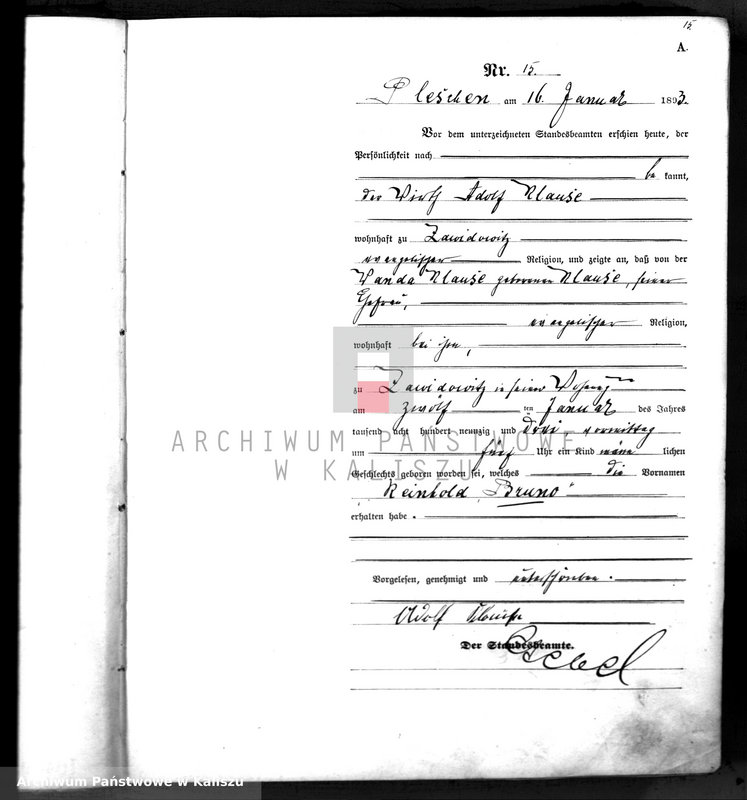 15.
A.
Nr. 15.
Pleschen am 16. Januar 1893.
Vor dem unterzeichneten Standesbeamten erschien heute, der
Persönlichkeit nach
be kannt,
der Wirth Adolf Klauße
wohnhaft zu Zawidowitz
evangelischer Religion, und zeigte an, daß von der
Wanda Klauße geborenen Klauße, seiner
Ehefrau,
evangelischer Religion,
wohnhaft bei ihm,
zu Zawidowitz in seiner Wohnung
am zwölf ten Januar des Jahres
tausend acht hundert neunzig und drei vormittag
um fünf Uhr ein Kind männ lichen
Geschlechts geboren worden sei, welches die Vornamen
"Reinhold Bruno"
erhalten habe.
Vorgelesen, genehmigt und unterschrieben.
Adolf Klauße
Der Standesbeamte.
ARCHIWUM PAŃSTWOWE
W KALISZU
Archiwum Państwowe w Kaliszu